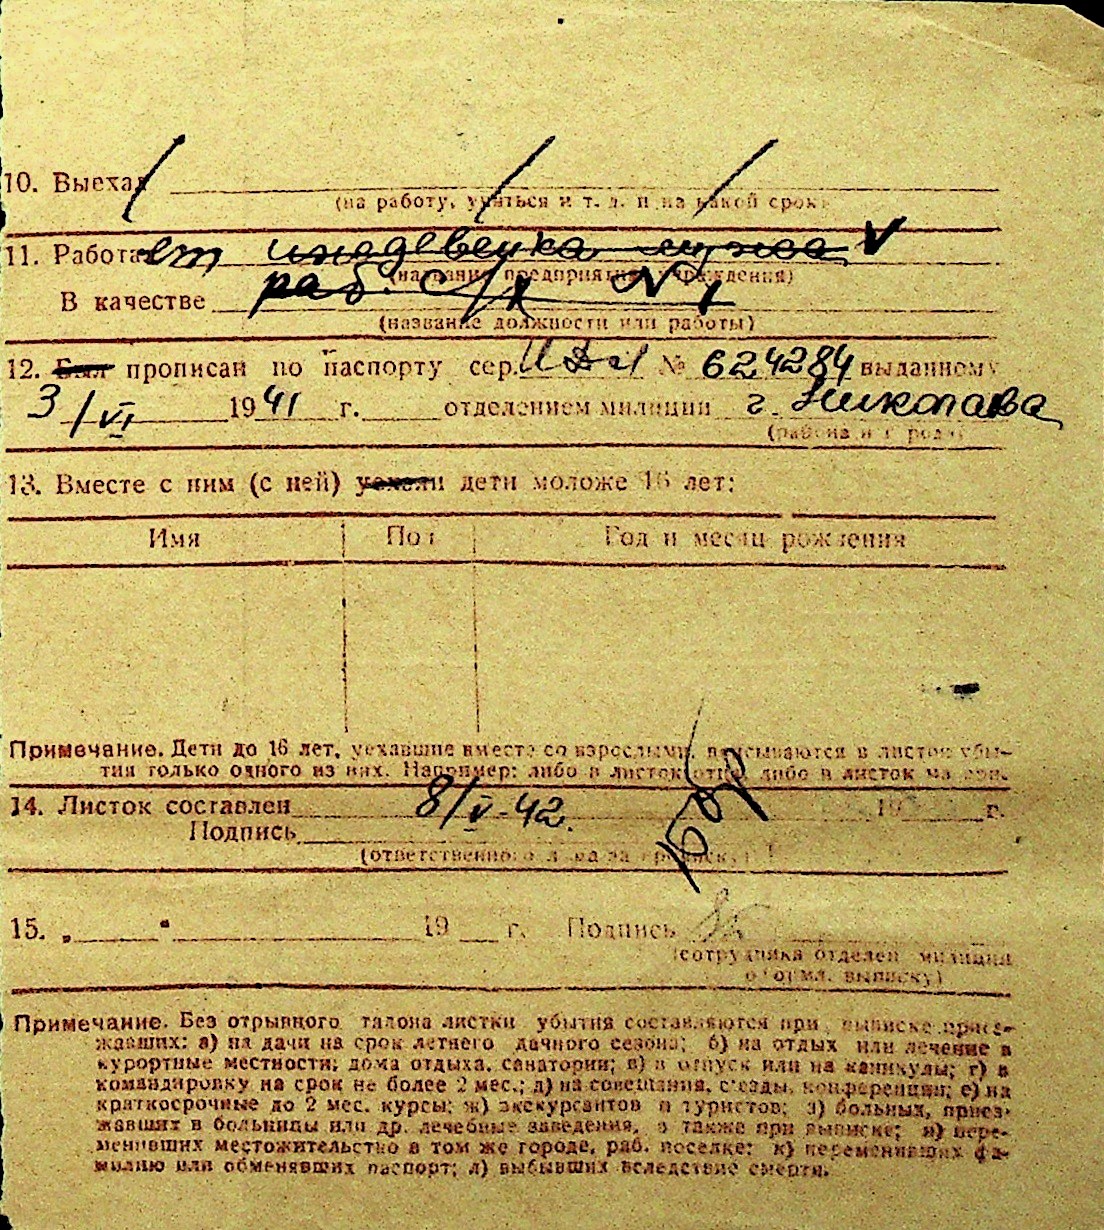 10. Выехал
(на работу, учиться и т. д. и на какой срок)
11. Работает иждевенка мужа V
(название предприятия, учреждения)
В качестве раб. с/х № 1
(название должности или работы)
12. Был прописан по паспорту сер. № 624284 выданному
3/VI 1941 г. отделением милиции г. Николаева
(района и города)
13. Вместе с ним (с ней) уехали дети моложе 16 лет:
Имя Пол Год и месяц рождения
Примечание. Дети до 16 лет, уехавшие вместе со взрослыми, вписываются в листок убы-
тия только одного из них. Например: либо в листок отца, либо в листок матери.
14. Листок составлен 8/V-42. 19 г.
Подпись
(ответственного лица за прописку)
15. „ “ 19 г. Подпись
(сотрудника отделен. милиции
оформл. выписку)
Примечание. Без отрывного талона листки убытия составляются при выписке приез-
жавших: а) на дачи на срок летнего дачного сезона; б) на отдых или лечение в
курортные местности; дома отдыха, санатории; в) в отпуск или на каникулы; г) в
командировку на срок не более 2 мес.; д) на совещания, съезды, конференции; е) на
краткосрочные до 2 мес. курсы; ж) экскурсантов и туристов; з) больных, приез-
жавших в больницы или др. лечебные заведения, а также при выписке; и) пере-
менивших местожительство в том же городе, раб. поселке; к) переменивших фа-
милию или обменявших паспорт; л) выбывших вследствие смерти.